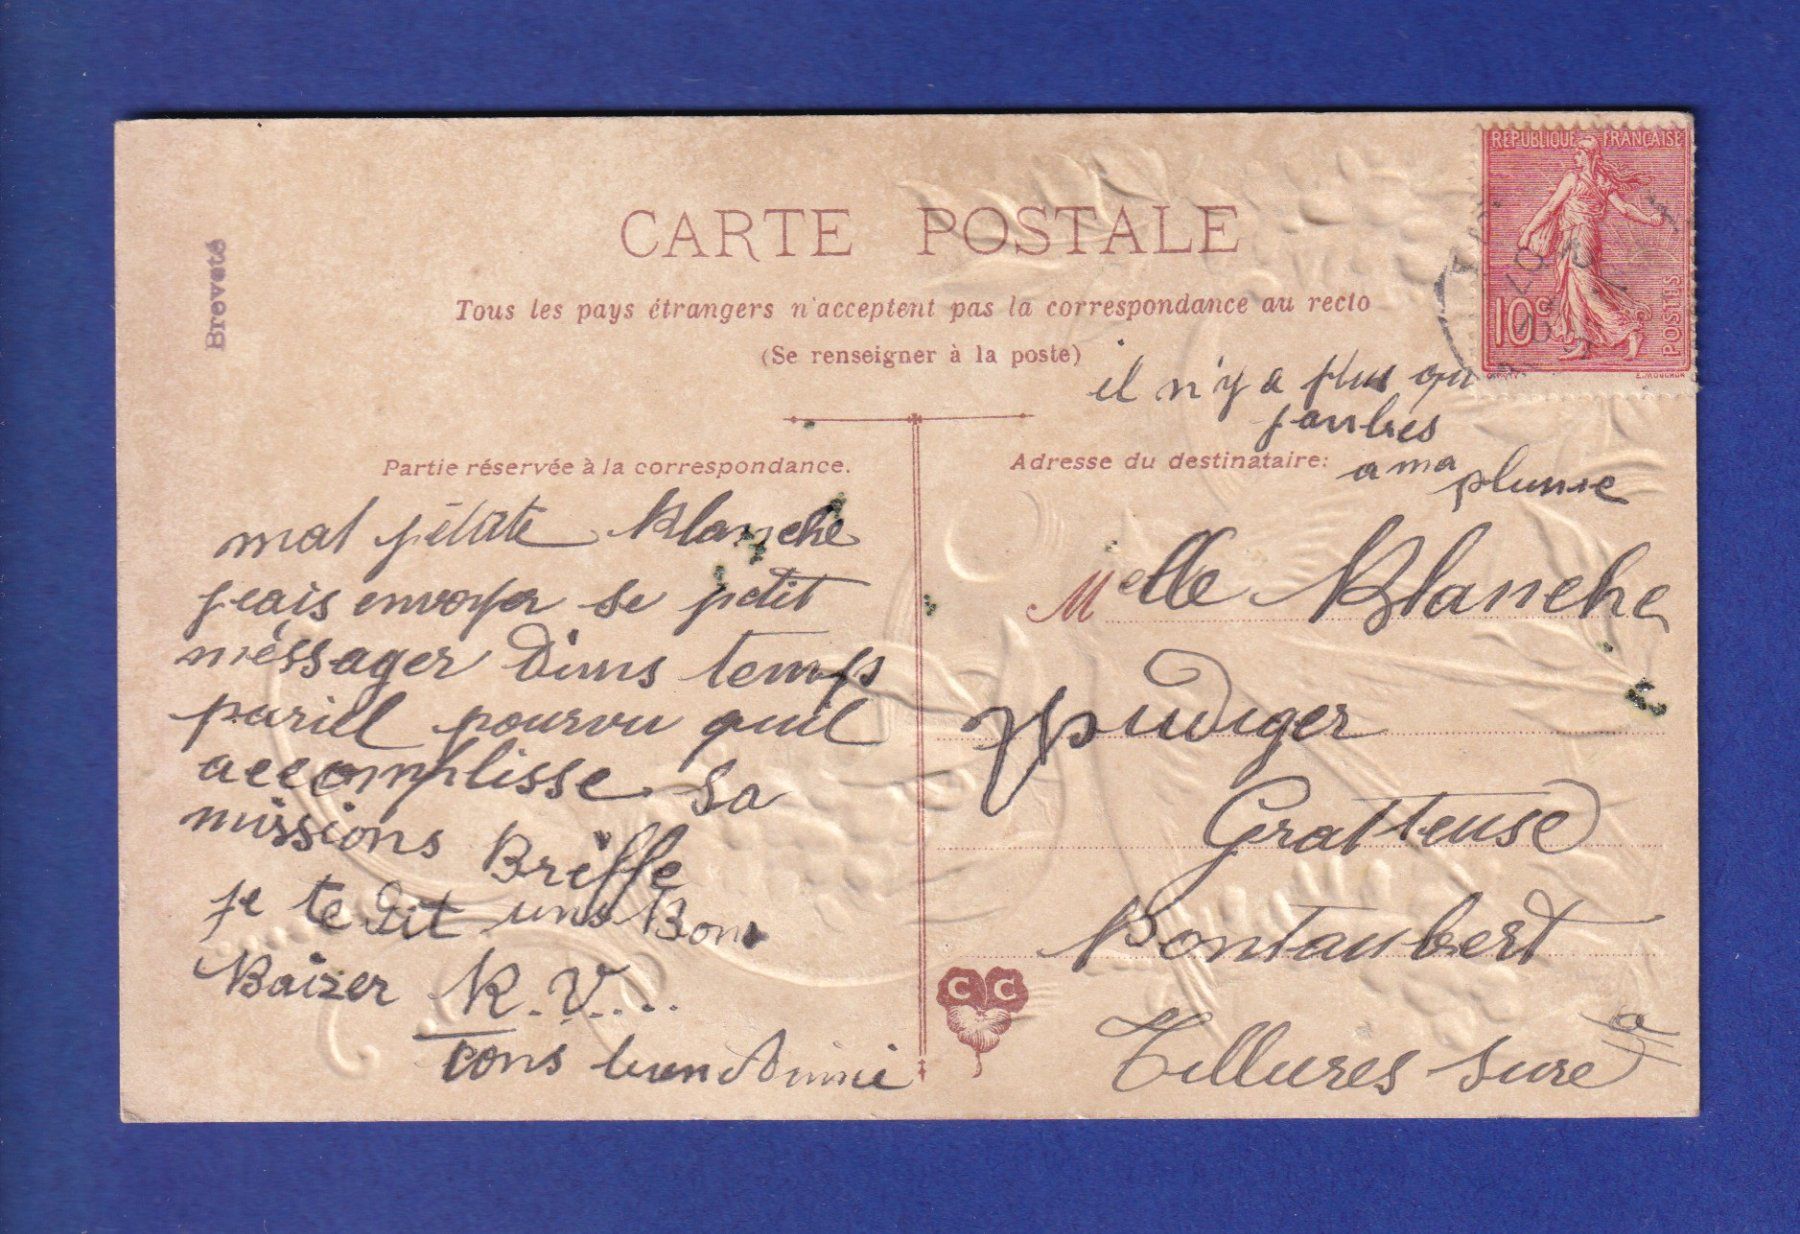 REPUBLIQUE FRANÇAISE
10c
POSTES
E. MOUCHON
Breveté
CARTE POSTALE
Tous les pays étrangers n'acceptent pas la correspondance au recto
(Se renseigner à la poste)
il n'y a plus qu
janbes
a ma plume
Partie réservée à la correspondance.
mat petite Blanche
jeais envoyer se petit
méssager Dins temps
pariel pourvu quil
accomplisse sa
missions Brèffe
je te Dit uns Bon
Baizer R. V....
tons bien Aimé
Adresse du destinataire:
Melle Blanche
Gratteuse
Pontaubert
a
C C